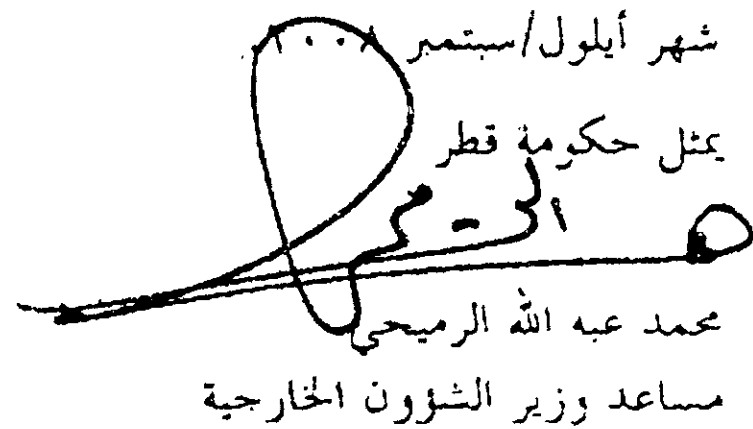 شهر أيلول/سبتمبر ٢٠٠٨
يمثل حكومة قطر
محمد عبه الله الرميحي
مساعد وزير الشؤون الخارجية